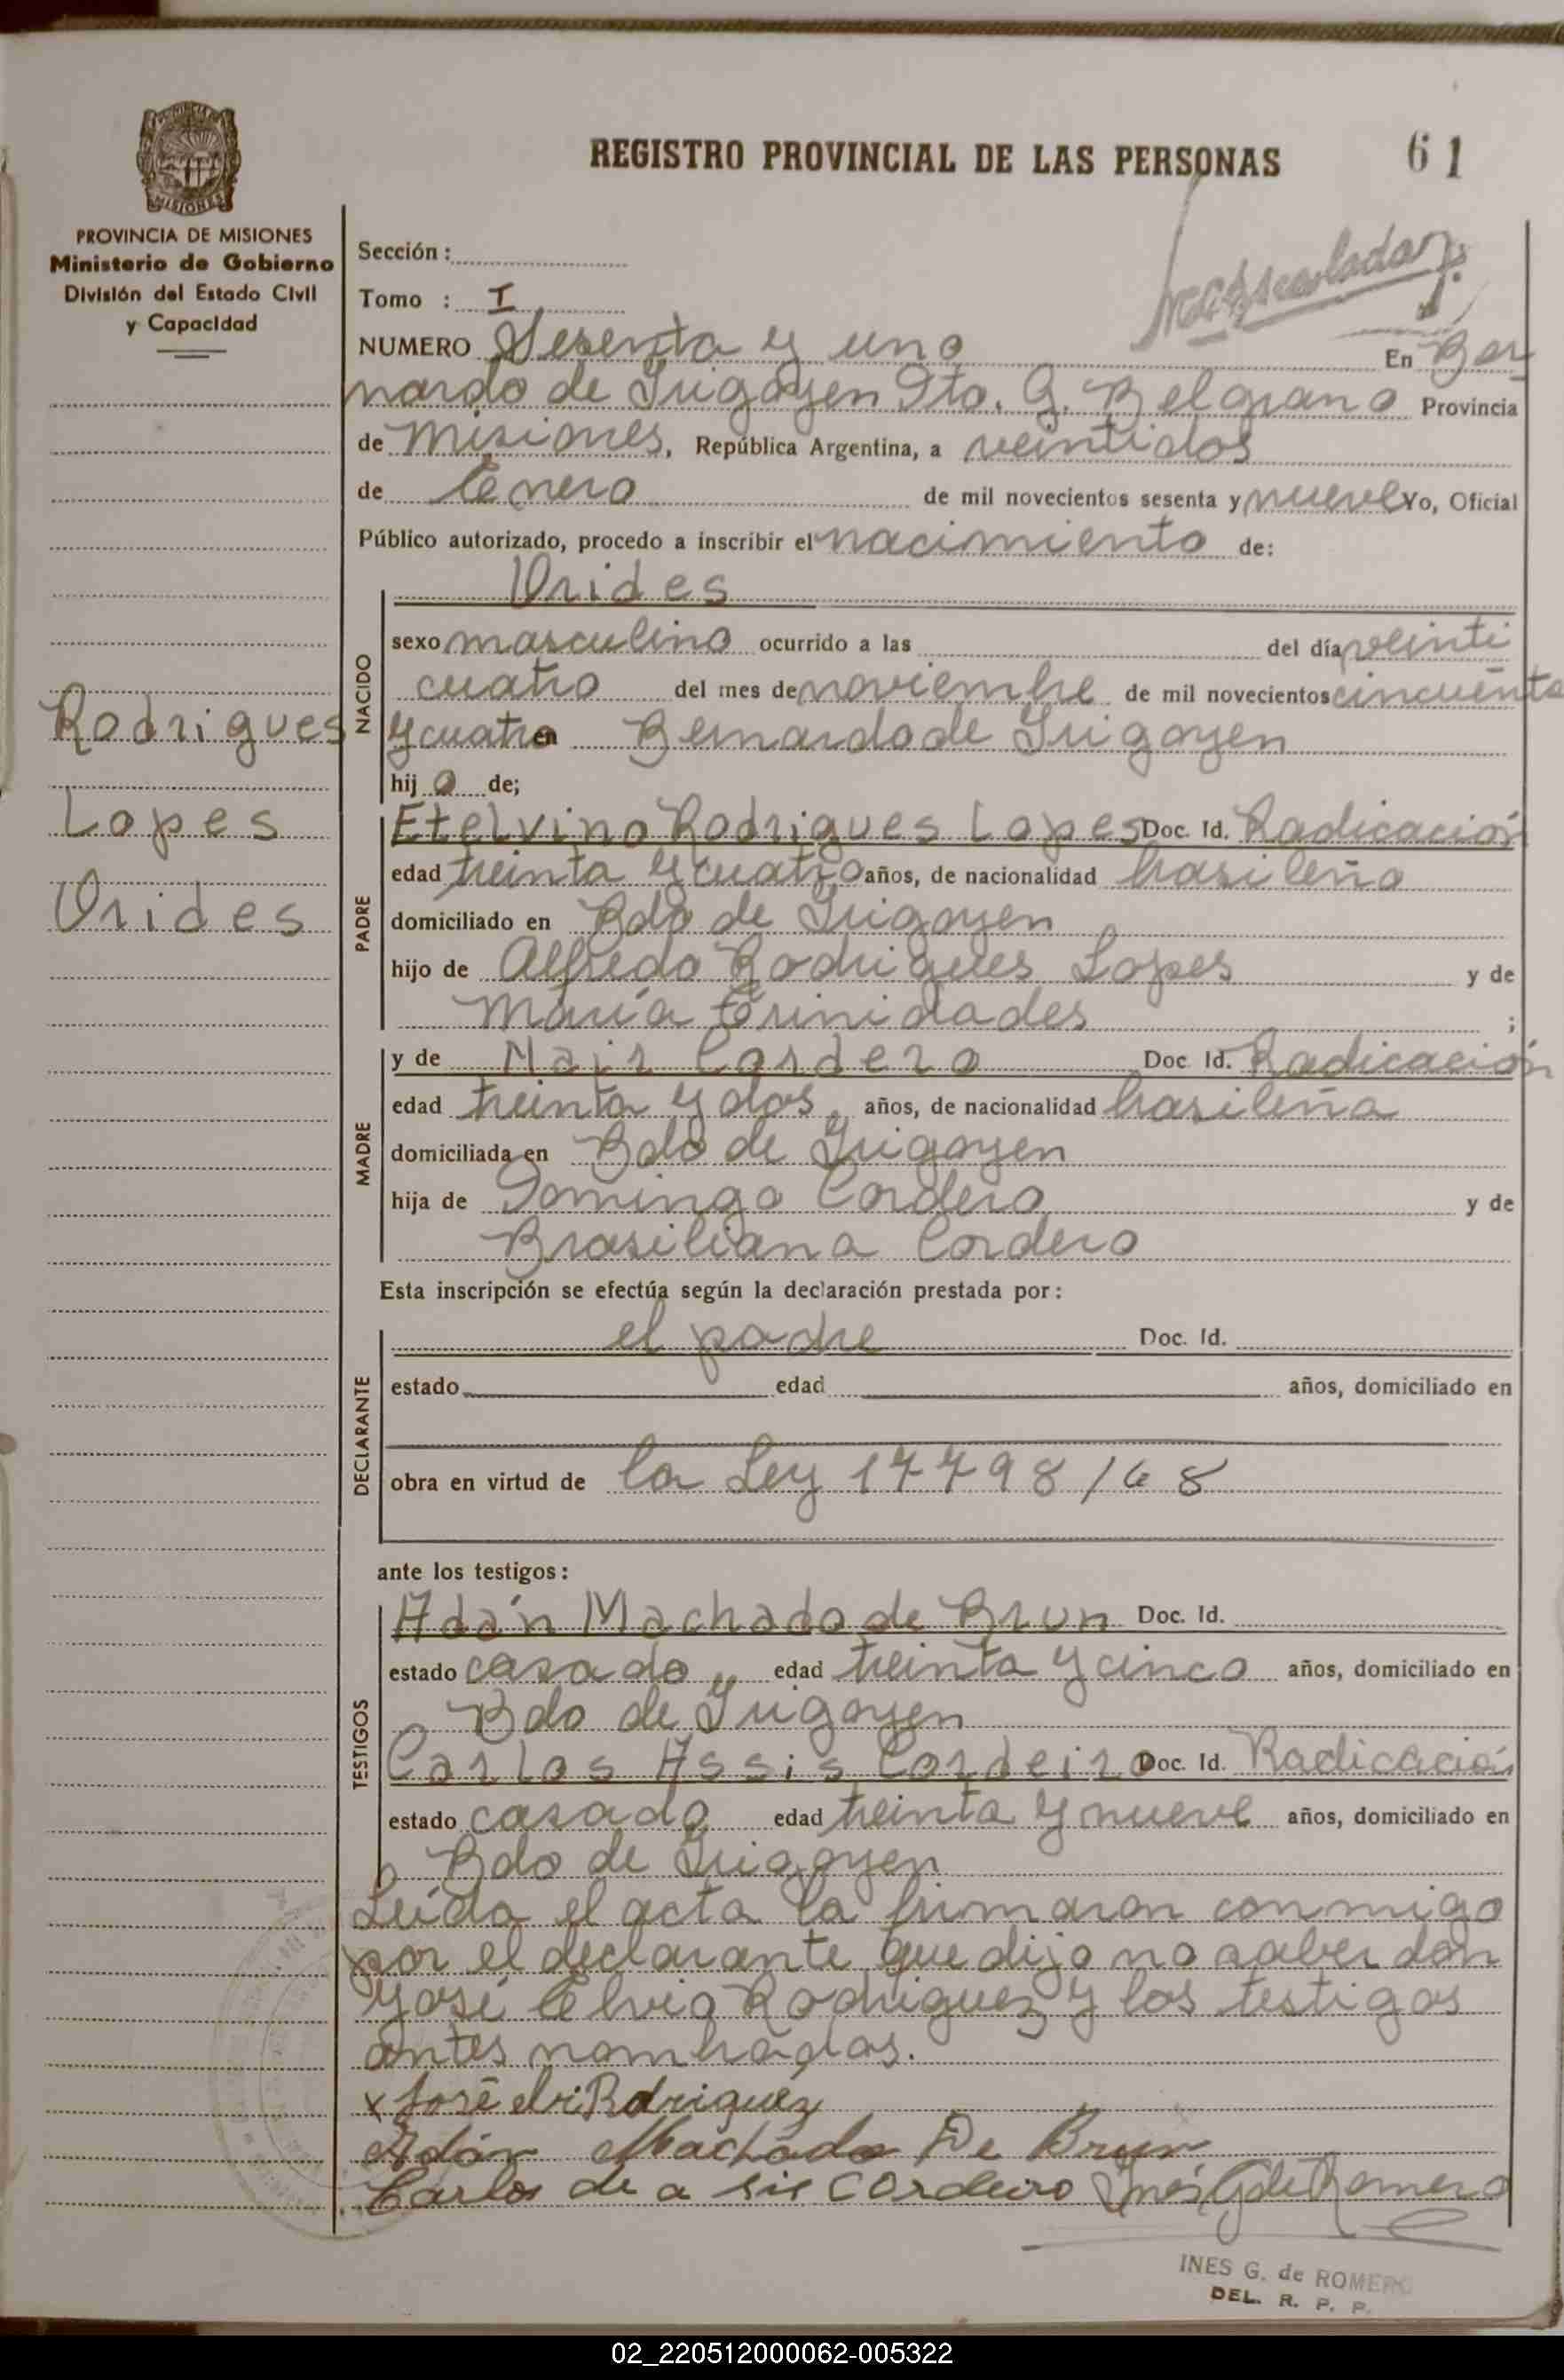 REGISTRO PROVINCIAL DE LAS PERSONAS
61
PROVINCIA DE MISIONES
Ministerio de Gobierno
División del Estado Civil
y Capacidad
Sección :
Tomo : I
NUMERO Sesenta y uno
En Ber
nardo de Irigoyen Dto. G. Belgrano Provincia
de Misiones, República Argentina, a veintidos
de Enero de mil novecientos sesenta y nueve Yo, Oficial
Público autorizado, procedo a inscribir el nacimiento de:
NACIDO
Orides
sexo masculino ocurrido a las del día veinti
cuatro del mes de noviembre de mil novecientos cincuenta
y cuatro en Bernardo de Irigoyen
hij o de;
Rodrigues
Lopes
Orides
PADRE
Etelvino Rodrigues Lopes Doc. Id. Radicación
edad treinta y cuatro años, de nacionalidad brasileño
domiciliado en Bdo de Irigoyen
hijo de Alfredo Rodrigues Lopes y de
María Trinidades ;
MADRE
y de Mair Cordero Doc. Id. Radicación
edad treinta y dos, años, de nacionalidad brasileña
domiciliada en Bdo de Irigoyen
hija de Domingo Cordero y de
Brasiliana Cordero
Esta inscripción se efectúa según la declaración prestada por:
DECLARANTE
el padre Doc. Id.
estado edad años, domiciliado en
obra en virtud de la Ley 17798/68
ante los testigos:
TESTIGOS
Adán Machado de Brun Doc. Id.
estado casado, edad treinta y cinco años, domiciliado en
Bdo de Irigoyen
Carlos Assis Cordeiro Doc. Id. Radicación
estado casado edad treinta y nueve años, domiciliado en
Bdo de Irigoyen
Leída el acta la firmaron conmigo
por el declarante que dijo no saber don
José Elvio Rodriguez y los testigos
antes nombrados.
x José elvi Rodriguez
Adán Machado De Brun
Carlos de a sis Cordeiro Inés G de Romero
INES G. de ROMERO
DEL. R. P. P.
02_220512000062-005322